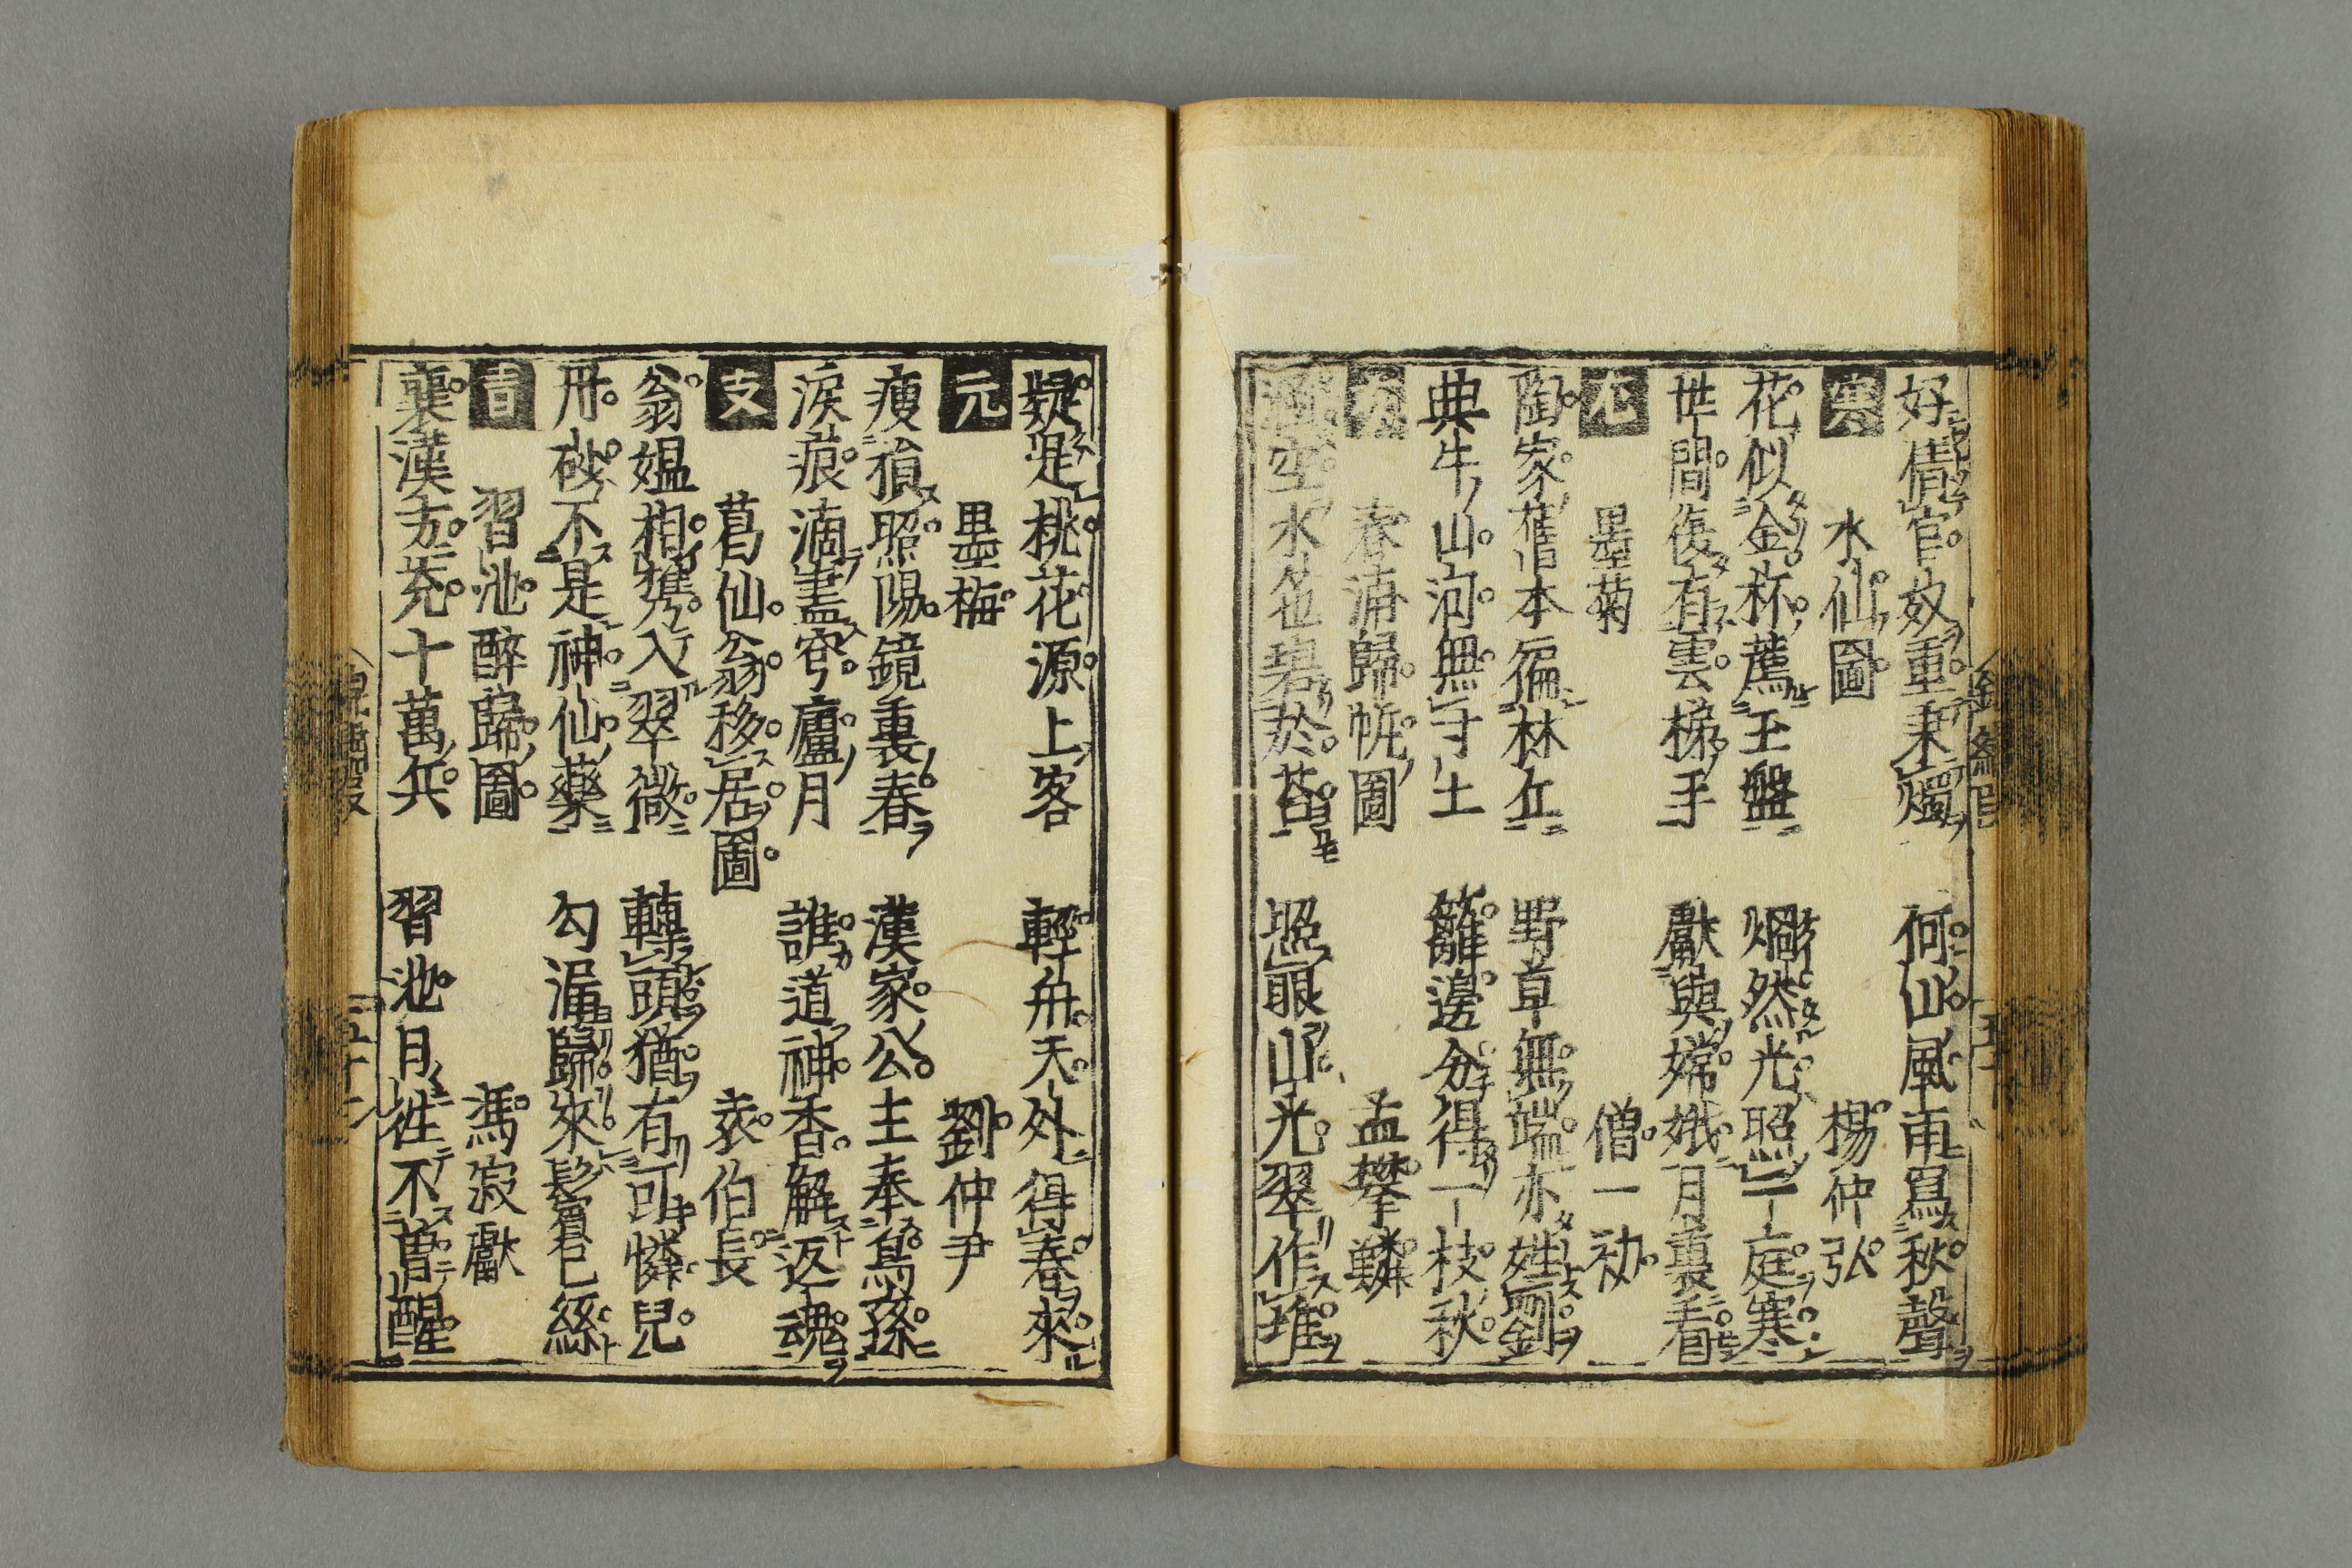 好倩官奴重秉燭　何山風雨寫秋聲
寒　水仙圖　楊仲弘
花似金杯薦玉盤　炯然光照一庭寒
世間復有雲梯手　獻與嫦娥月裏看
尤　墨菊　僧一初
陶家舊本徧林丘　野草無端亦姓劉
典午山河無寸土　籬邊分得一枝秋
春浦歸帆圖　孟攀鱗
空水色碧於苔　照眼山光翠作堆
疑是桃花源上客　輕舟天外得春來
元　墨梅　劉仲尹
瘦損照陽鏡裏春　漢家公主奉烏孫
淚痕滴盡穹廬月　誰道神香解返魂
支　葛仙翁移居圖　袁伯長
翁媼相携入翠微　轉頭猶有可憐兒
丹砂不是神仙藥　勾漏歸來鬢已絲
青　習池醉歸圖　馮寂獻
襄漢方屯十萬兵　習池日往不曾醒